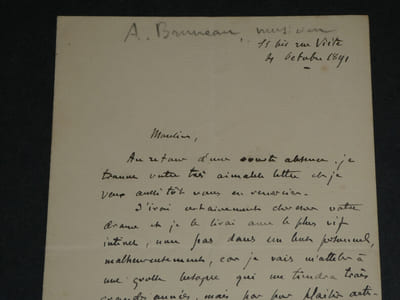 A. Bruneau, musicien
11 bis rue Viète
21 octobre 1891
Monsieur,
Au retour d'une courte absence, je
trouve votre très aimable lettre et je
veux aussitôt vous en remercier.
J'irai certainement chercher votre
drame et je le lirai avec le plus vif
intérêt, non pas dans un but personnel,
malheureusement, car je vais m'atteler à
une grosse besogne qui me tiendra très
années, mais par pur plaisir